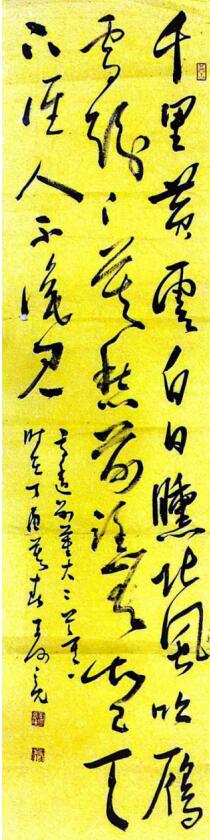 千里黄雲白日曛北風吹雁
雪紛紛莫愁前路無知己天
下誰人不識君
高適別董大二首
時在丁酉暮春